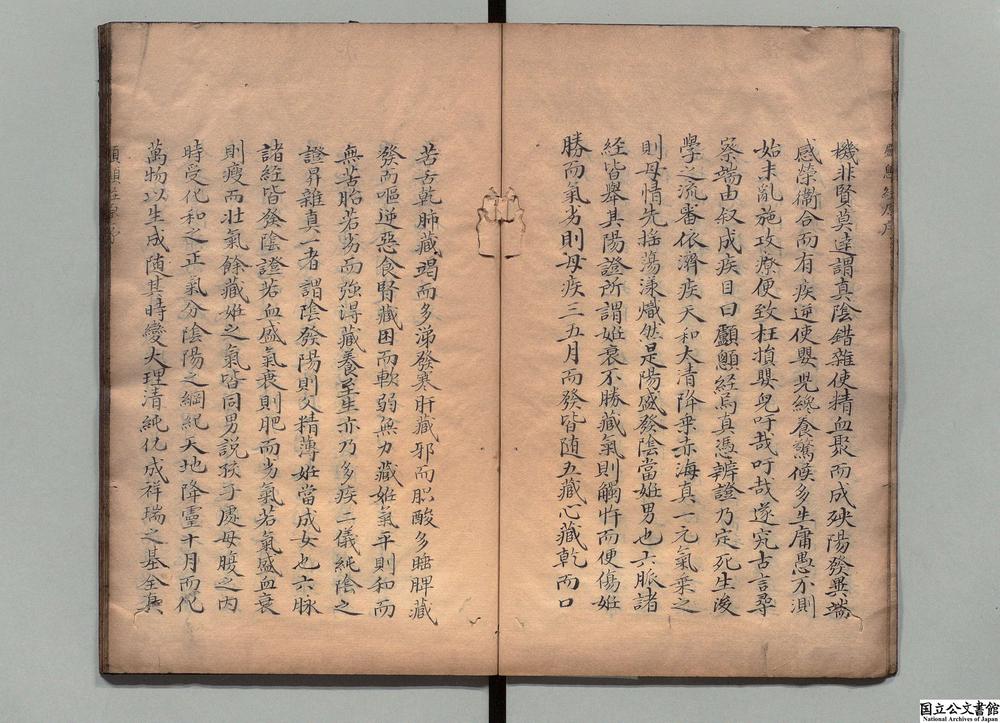 機非賢莫達謂真陰錯雜使精血聚而成殃陽發異端
感榮衞合而有疾逆使嬰兒纔養驚候多生庸愚不測
始末亂施攻療便致枉損嬰兒吁哉吁哉遂究古言尋
察端由叙成疾目曰顱顖経爲真憑辨證乃定死生後
學之流審依濟疾天和太清降乗赤海真一元氣乗之
則母情先搖蕩漾熾然是陽盛發陰當姙男也六脈諸
経皆舉其陽證所謂姙衰不勝藏氣則觸忤而便傷姙
勝而氣劣則母疾三五月而發皆随五藏心藏乾而口
苦舌乾肺藏竭而多涕發寒肝藏邪而䏢酸多睡脾藏
發而嘔逆惡食腎藏困而軟弱無力藏姙氣平則和而
無苦胎若劣而強得藏養至生亦乃多疾二儀純陰之
證昇雜真一者謂陰發陽則父精薄姙當成女也六脉
諸経皆發陰證若血盛氣衰則肥而劣氣若氣盛血衰
則瘦而壯氣餘藏姙之氣皆同男説孩子處母腹之内
時受代和之正氣分陰陽之綱紀天地降靈十月而化
萬物以生成随其時變大理清純化成祥瑞之基全集
国立公文書館
National Archives of Japan